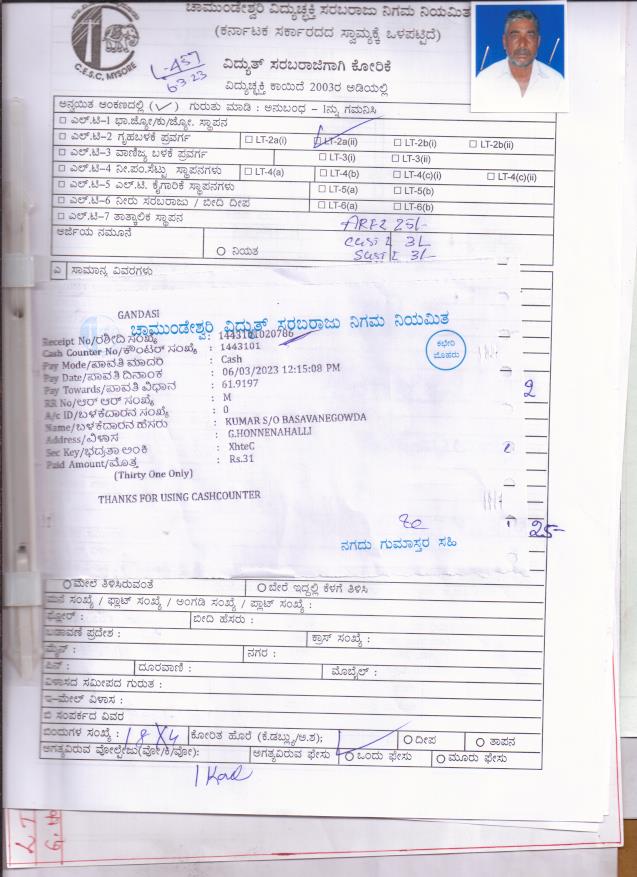 ಚಾಮುಂಡೇಶ್ವರಿ ವಿದ್ಯುಚ್ಛಕ್ತಿ ಸರಬರಾಜು ನಿಗಮ ನಿಯಮಿತ
(ಕರ್ನಾಟಕ ಸರ್ಕಾರದ ಸ್ವಾಮ್ಯಕ್ಕೆ ಒಳಪಟ್ಟಿದೆ)
C.E.S.C, MYSORE
L-457
6-3-23
ವಿದ್ಯುತ್ ಸರಬರಾಜಿಗಾಗಿ ಕೋರಿಕೆ
ವಿದ್ಯುಚ್ಛಕ್ತಿ ಕಾಯಿದೆ 2003ರ ಅಡಿಯಲ್ಲಿ
ಅನ್ವಯಿತ ಅಂಕಣದಲ್ಲಿ (✓) ಗುರುತು ಮಾಡಿ : ಅನುಬಂಧ - 1ನ್ನು ಗಮನಿಸಿ
☐ ಎಲ್.ಟಿ-1 ಭಾ.ಜ್ಯೋ/ಕು/ಜ್ಯೋ. ಸ್ಥಾಪನ
☐ ಎಲ್.ಟಿ-2 ಗೃಹಬಳಕೆ ಪ್ರವರ್ಗ ☐ LT-2a(i) ☐ LT-2a(ii) ☐ LT-2b(i) ☐ LT-2b(ii)
☐ ಎಲ್.ಟಿ-3 ವಾಣಿಜ್ಯ ಬಳಕೆ ಪ್ರವರ್ಗ ☐ LT-3(i) ☐ LT-3(ii)
☐ ಎಲ್.ಟಿ-4 ನೀ.ಪಂ.ಸೆಟ್ಟು ಸ್ಥಾಪನಗಳು ☐ LT-4(a) ☐ LT-4(b) ☐ LT-4(c)(i) ☐ LT-4(c)(ii)
☐ ಎಲ್.ಟಿ-5 ಎಲ್.ಟಿ. ಕೈಗಾರಿಕೆ ಸ್ಥಾಪನಗಳು ☐ LT-5(a) ☐ LT-5(b)
☐ ಎಲ್.ಟಿ-6 ನೀರು ಸರಬರಾಜು / ಬೀದಿ ದೀಪ ☐ LT-6(a) ☐ LT-6(b)
☐ ಎಲ್.ಟಿ-7 ತಾತ್ಕಾಲಿಕ ಸ್ಥಾಪನ
25/-
ಅರ್ಜಿಯ ನಮೂನೆ
○ ನಿಯತ
3/-
ಎ ಸಾಮಾನ್ಯ ವಿವರಗಳು
GANDASI
ಚಾಮುಂಡೇಶ್ವರಿ ವಿದ್ಯುತ್ ಸರಬರಾಜು ನಿಗಮ ನಿಯಮಿತ
Receipt No/ರಶೀದಿ ಸಂಖ್ಯೆ : 1443101020786
Cash Counter No/ಕೌಂಟರ್ ಸಂಖ್ಯೆ : 1443101
ಕಛೇರಿ
ಮೊಹರು
Pay Mode/ಪಾವತಿ ಮಾದರಿ : Cash
Pay Date/ಪಾವತಿ ದಿನಾಂಕ : 06/03/2023 12:15:08 PM
Pay Towards/ಪಾವತಿ ವಿಧಾನ : 61.9197
RR No/ಆರ್ ಆರ್ ಸಂಖ್ಯೆ : M
A/c ID/ಬಳಕೆದಾರನ ಸಂಖ್ಯೆ : 0
Name/ಬಳಕೆದಾರನ ಹೆಸರು : KUMAR S/O BASAVANEGOWDA
Address/ವಿಳಾಸ : G.HONNENAHALLI
Sec Key/ಭದ್ರತಾ ಅಂಕಿ : XhteC
Paid Amount/ಮೊತ್ತ : Rs.31
(Thirty One Only)
THANKS FOR USING CASHCOUNTER
25-
ನಗದು ಗುಮಾಸ್ತರ ಸಹಿ
○ ಮೇಲೆ ತಿಳಿಸಿರುವಂತೆ ○ ಬೇರೆ ಇದ್ದಲ್ಲಿ ಕೆಳಗೆ ತಿಳಿಸಿ
ಮನೆ ಸಂಖ್ಯೆ / ಫ್ಲಾಟ್ ಸಂಖ್ಯೆ / ಅಂಗಡಿ ಸಂಖ್ಯೆ / ಪ್ಲಾಟ್ ಸಂಖ್ಯೆ :
ಫ್ಲೋರ್ : ಬೀದಿ ಹೆಸರು :
ಬಡಾವಣೆ ಪ್ರದೇಶ : ಕ್ರಾಸ್ ಸಂಖ್ಯೆ :
ಮೈನ್ : ನಗರ :
ಪಿನ್ : ದೂರವಾಣಿ : ಮೊಬೈಲ್ :
ವಿಳಾಸದ ಸಮೀಪದ ಗುರುತ :
ಇ-ಮೇಲ್ ವಿಳಾಸ :
ಬಿ ಸಂಪರ್ಕದ ವಿವರ
ಬಿಂದುಗಳ ಸಂಖ್ಯೆ : ಕೋರಿತ ಹೊರೆ (ಕೆ.ಡಬ್ಲ್ಯು/ಅ.ಶ): ○ ದೀಪ ○ ತಾಪನ
ಅಗತ್ಯವಿರುವ ವೋಲ್ಟೇಜು(ವೋ/ಕಿ/ವೋ): ಅಗತ್ಯವಿರುವ ಫೇಸು ○ ಒಂದು ಫೇಸು ○ ಮೂರು ಫೇಸು